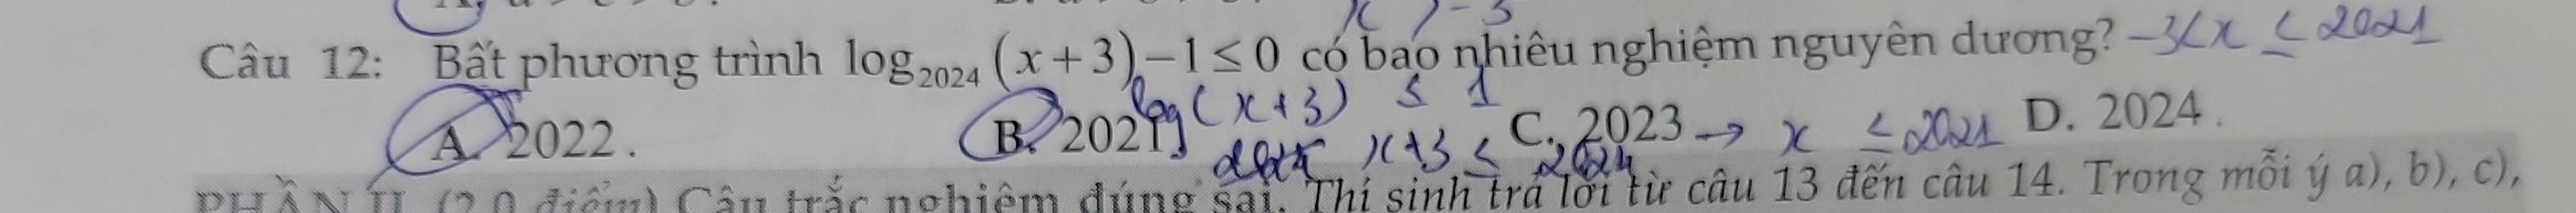 x > -3
Câu 12: Bất phương trình log₂₀₂₄ (x + 3) – 1 ≤ 0 có bao nhiêu nghiệm nguyên dương? -3 < x ≤ 2021
log (x+3) ≤ 1
A. 2022. B. 2021 C. 2023 → x ≤ 2021 D. 2024.
x+3 ≤ 2024
PHẦN II (2,0 điểm) Câu trắc nghiệm đúng sai. Thí sinh trả lời từ câu 13 đến câu 14. Trong mỗi ý a), b), c),